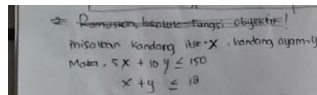 2. Rumuskan bentuk fungsi obyektif!
misalkan kandang itik = x, kandang ayam = y
Maka, 5x + 10y ≤ 150
x + y ≤ 18